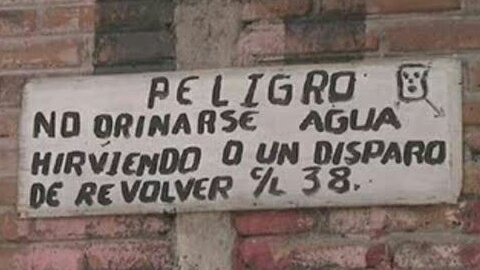 PELIGRO
NO ORINARSE AGUA
HIRVIENDO O UN DISPARO
DE REVOLVER C/L 38.